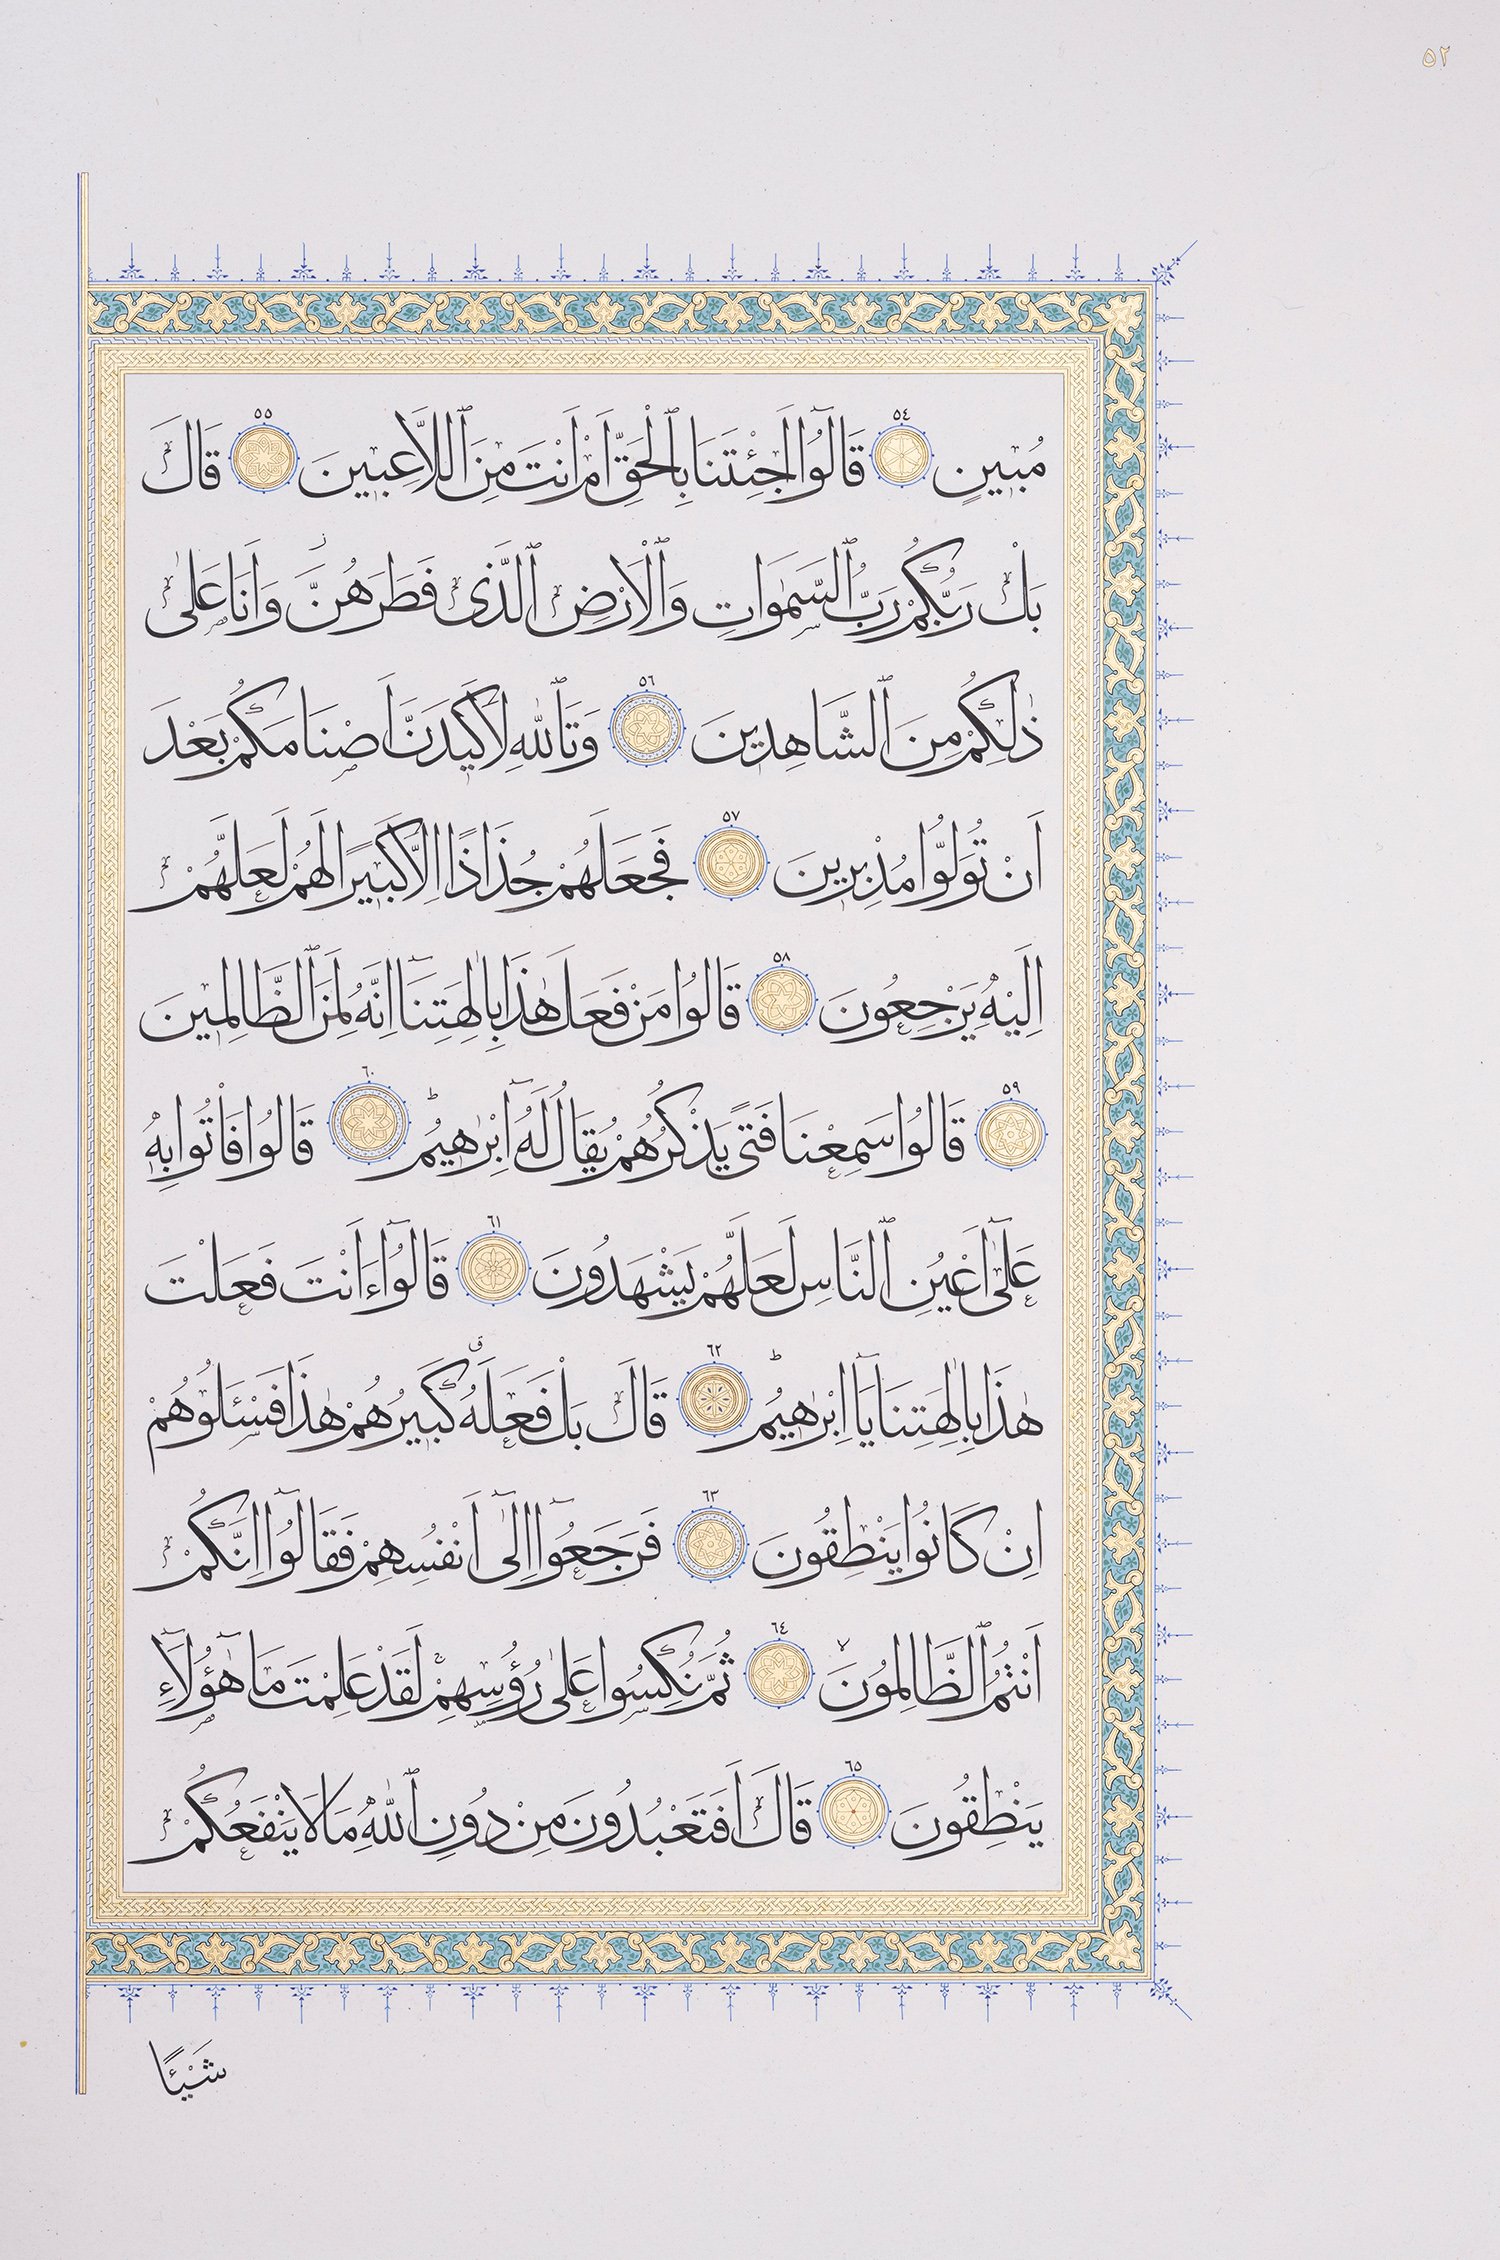 ٥٢
مُبٖينٍ ٥٤ قَالُٓوا اَجِئْتَنَا بِالْحَقِّ اَمْ اَنْتَ مِنَ ٱللَّاعِبٖينَ ٥٥ قَالَ
بَلْ رَبُّكُمْ رَبُّ ٱلسَّمٰوَاتِ وَٱلْاَرْضِ ٱلَّذٖى فَطَرَهُنَّ وَاَنَا عَلٰى
ذٰلِكُمْ مِنَ ٱلشَّاهِدٖينَ ٥٦ وَتَٱللّٰهِ لَاَكٖيدَنَّ اَصْنَامَكُمْ بَعْدَ
اَنْ تُوَلُّوا مُدْبِرٖينَ ٥٧ فَجَعَلَهُمْ جُذَاذًا اِلَّا كَبٖيرًا لَهُمْ لَعَلَّهُمْ
اِلَيْهِ يَرْجِعُونَ ٥٨ قَالُوا مَنْ فَعَلَ هٰذَا بِاٰلِهَتِنَٓا اِنَّهُ لَمِنَ ٱلظَّالِمٖينَ
٥٩ قَالُوا سَمِعْنَا فَتًى يَذْكُرُهُمْ يُقَالُ لَهُٓ اِبْرٰهٖيمُ ؕ ٦٠ قَالُوا فَاْتُوا بِهٖ
عَلٰٓى اَعْيُنِ ٱلنَّاسِ لَعَلَّهُمْ يَشْهَدُونَ ٦١ قَالُٓوا ءَاَنْتَ فَعَلْتَ
هٰذَا بِاٰلِهَتِنَا يَٓا اِبْرٰهٖيمُ ؕ ٦٢ قَالَ بَلْ فَعَلَهُ ق كَبٖيرُهُمْ هٰذَا فَسْـَٔلُوهُمْ
اِنْ كَانُوا يَنْطِقُونَ ٦٣ فَرَجَعُٓوا اِلٰٓى اَنْفُسِهِمْ فَقَالُٓوا اِنَّكُمْ
اَنْتُمُ ٱلظَّالِمُونَ ۙ ٦٤ ثُمَّ نُكِسُوا عَلٰى رُؤُسِهِمْ لَقَدْ عَلِمْتَ مَا هٰٓؤُلَٓاءِ
يَنْطِقُونَ ٦٥ قَالَ اَفَتَعْبُدُونَ مِنْ دُونِ ٱللّٰهِ مَا لَا يَنْفَعُكُمْ
شَيْـًٔا